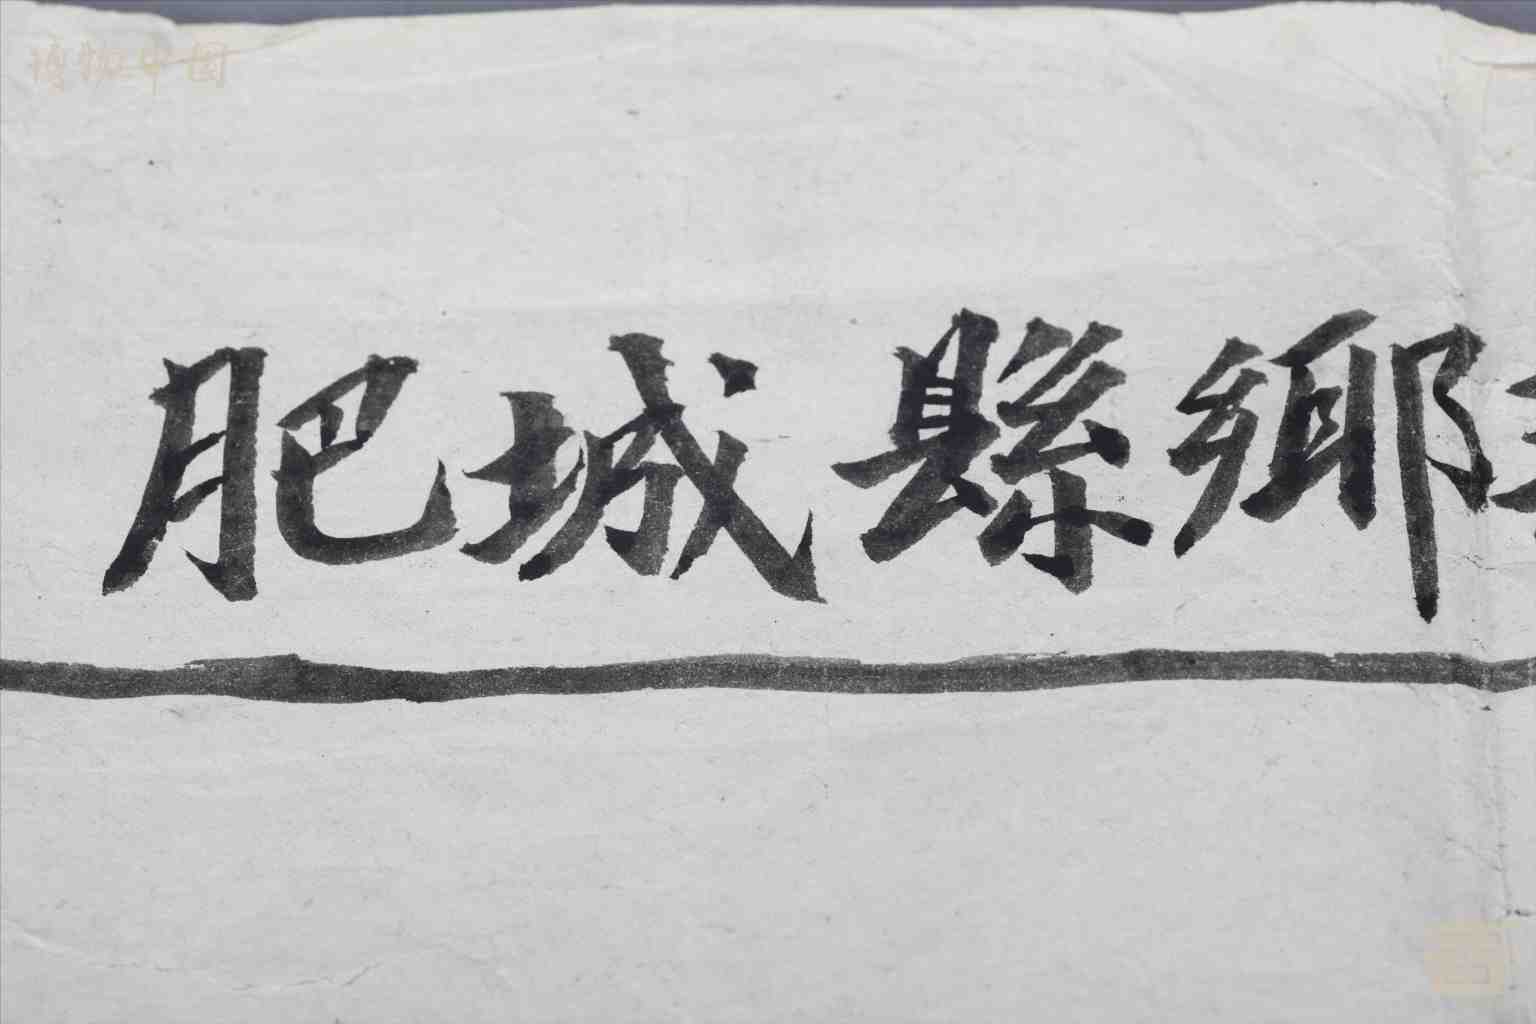 博物中国
肥城縣鄉